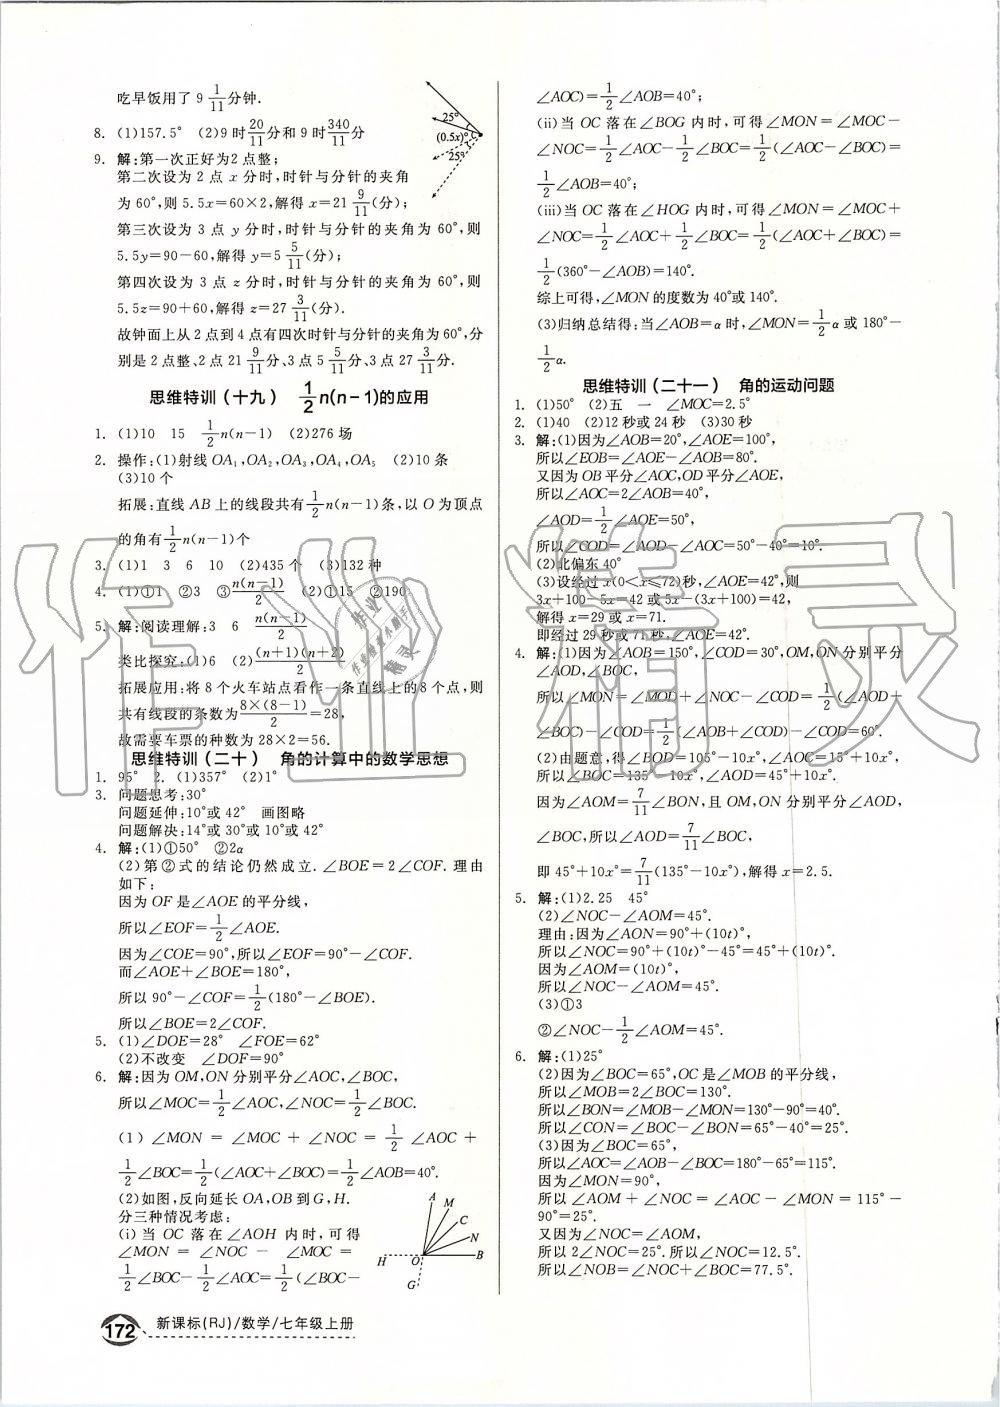 吃早饭用了 9 1/11 分钟.
8. (1)157.5° (2)9时 20/11 分和 9时 340/11 分
9. 解:第一次正好为2点整;
第二次设为 2 点 x 分时,时针与分针的夹角
为 60°,则 5.5x=60×2,解得 x=21 9/11 (分);
第三次设为 3 点 y 分时,时针与分针的夹角为 60°,则
5.5y=90-60,解得 y=5 5/11 (分);
第四次设为 3 点 z 分时,时针与分针的夹角为 60°,则
5.5z=90+60,解得 z=27 3/11 (分).
故钟面上从 2 点到 4 点有四次时针与分针的夹角为 60°,分
别是 2 点整、2 点 21 9/11 分、3 点 5 5/11 分、3 点 27 3/11 分.
25°
(0.5x)°
25°
思维特训(十九) 1/2 n(n-1)的应用
1. (1)10 15 1/2 n(n-1) (2)276 场
2. 操作:(1)射线 OA₁,OA₂,OA₃,OA₄,OA₅ (2)10 条
(3)10 个
拓展:直线 AB 上的线段共有 1/2 n(n-1)条,以 O 为顶点
的角有 1/2 n(n-1)个
3. (1)1 3 6 10 (2)435 个 (3)132 种
4. (1)①1 ②3 ③ n(n-1)/2 (2)①15 ②190
5. 解:阅读理解:3 6 n(n-1)/2
类比探究:(1)6 (2) (n+1)(n+2)/2
拓展应用:将 8 个火车站点看作一条直线上的 8 个点,则
共有线段的条数为 8×(8-1)/2 =28,
故需要车票的种数为 28×2=56.
思维特训(二十) 角的计算中的数学思想
1. 95° 2. (1)357° (2)1°
3. 问题思考:30°
问题延伸:10°或 42° 画图略
问题解决:14°或 30°或 10°或 42°
4. 解:(1)①50° ②2α
(2)第②式的结论仍然成立.∠BOE=2∠COF. 理由
如下:
因为 OF 是∠AOE 的平分线,
所以∠EOF= 1/2 ∠AOE.
因为∠COE=90°,所以∠EOF=90°-∠COF.
而∠AOE+∠BOE=180°,
所以 90°-∠COF= 1/2 (180°-∠BOE).
所以∠BOE=2∠COF.
5. (1)∠DOE=28° ∠FOE=62°
(2)不改变 ∠DOF=90°
6. 解:因为 OM,ON 分别平分∠AOC,∠BOC,
所以∠MOC= 1/2 ∠AOC,∠NOC= 1/2 ∠BOC.
(1)∠MON=∠MOC+∠NOC= 1/2 ∠AOC+
1/2 ∠BOC= 1/2 (∠AOC+∠BOC)= 1/2 ∠AOB=40°.
(2)如图,反向延长 OA,OB 到 G,H.
分三种情况考虑:
(i)当 OC 落在∠AOH 内时,可得
∠MON=∠NOC-∠MOC=
1/2 ∠BOC- 1/2 ∠AOC= 1/2 (∠BOC-
A
M
C
N
H
O
B
G
∠AOC)= 1/2 ∠AOB=40°;
(ii)当 OC 落在∠BOG 内时,可得∠MON=∠MOC-
∠NOC= 1/2 ∠AOC- 1/2 ∠BOC= 1/2 (∠AOC-∠BOC)=
1/2 ∠AOB=40°;
(iii)当 OC 落在∠HOG 内时,可得∠MON=∠MOC+
∠NOC= 1/2 ∠AOC+ 1/2 ∠BOC= 1/2 (∠AOC+∠BOC)=
1/2 (360°-∠AOB)=140°.
综上可得,∠MON 的度数为 40°或 140°.
(3)归纳总结得:当∠AOB=α 时,∠MON= 1/2 α 或 180°-
1/2 α.
思维特训(二十一) 角的运动问题
1. (1)50° (2)五 一 ∠MOC=2.5°
2. (1)40 (2)12 秒或 24 秒 (3)30 秒
3. 解:(1)因为∠AOB=20°,∠AOE=100°,
所以∠EOB=∠AOE-∠AOB=80°.
又因为 OB 平分∠AOC,OD 平分∠AOE,
所以∠AOC=2∠AOB=40°,
∠AOD= 1/2 ∠AOE=50°,
所以∠COD=∠AOD-∠AOC=50°-40°=10°.
(2)北偏东 40°
(3)设经过 x(0<x≤72)秒,∠AOE=42°,则
3x+100-5x=42 或 5x-(3x+100)=42,
解得 x=29 或 x=71.
即经过 29 秒或 71 秒,∠AOE=42°.
4. 解:(1)因为∠AOB=150°,∠COD=30°,OM,ON 分别平分
∠AOD,∠BOC,
所以∠MON=∠MOD+∠NOC-∠COD= 1/2 (∠AOD+
∠BOC)-∠COD= 1/2 (∠AOB+∠COD)-∠COD=60°.
(2)由题意,得∠BOD=105°-10x°,∠AOC=15°+10x°,
所以∠BOC=135°-10x°,∠AOD=45°+10x°.
因为∠AOM= 7/11 ∠BON,且 OM,ON 分别平分∠AOD,
∠BOC,所以∠AOD= 7/11 ∠BOC,
即 45°+10x°= 7/11 (135°-10x°),解得 x=2.5.
5. 解:(1)2.25 45°
(2)∠NOC-∠AOM=45°.
理由:因为∠AON=90°+(10t)°,
所以∠NOC=90°+(10t)°-45°=45°+(10t)°.
因为∠AOM=(10t)°,
所以∠NOC-∠AOM=45°.
(3)①3
②∠NOC- 1/2 ∠AOM=45°.
6. 解:(1)25°
(2)因为∠BOC=65°,OC 是∠MOB 的平分线,
所以∠MOB=2∠BOC=130°.
所以∠BON=∠MOB-∠MON=130°-90°=40°.
所以∠CON=∠BOC-∠BON=65°-40°=25°.
(3)因为∠BOC=65°,
所以∠AOC=∠AOB-∠BOC=180°-65°=115°.
因为∠MON=90°,
所以∠AOM+∠NOC=∠AOC-∠MON=115°-
90°=25°.
又因为∠NOC=∠AOM,
所以 2∠NOC=25°.所以∠NOC=12.5°.
所以∠NOB=∠NOC+∠BOC=77.5°.
172 新课标(RJ)/数学/七年级上册
作业精灵